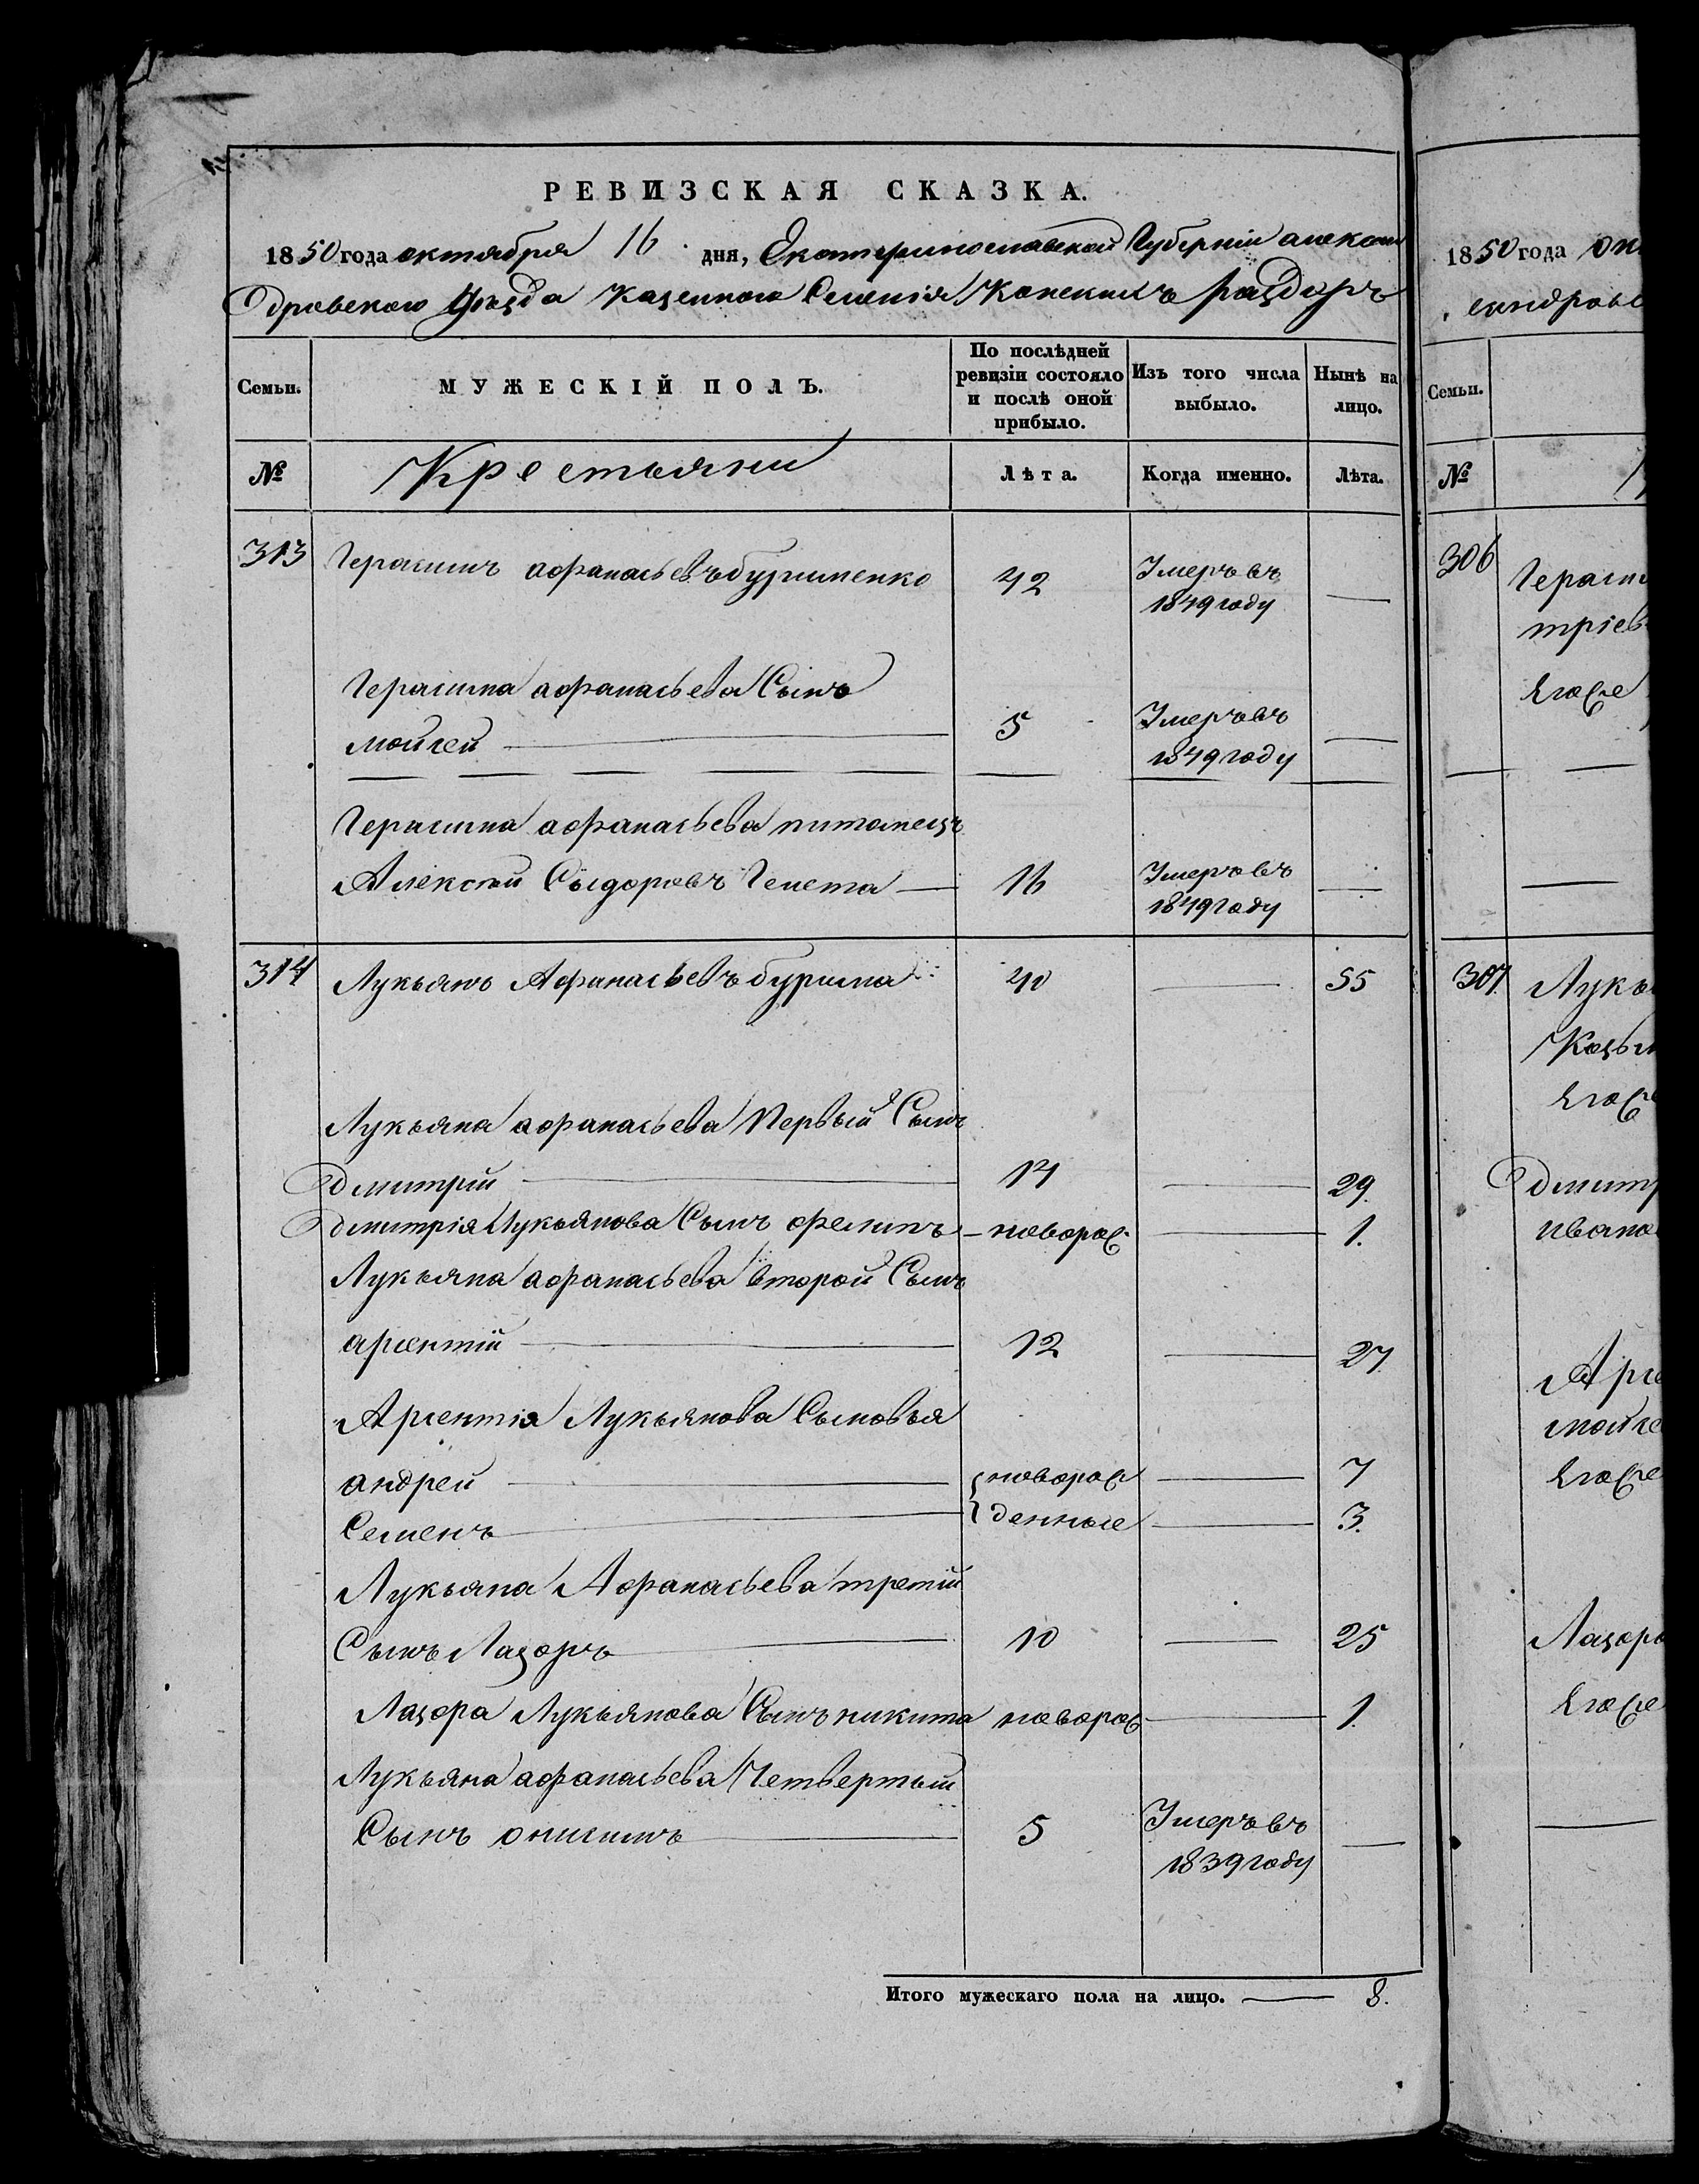 РЕВИЗСКАЯ СКАЗКА.
1850 года октября 16 дня, Екатеринославской Губерніи алексан
дровскаго уѣзда Казеннаго Селенія Конскихъ раздоръ
Семьи.
МУЖЕСКІЙ ПОЛЪ.
По послѣдней ревизіи состояло и послѣ оной прибыло.
Изъ того числа выбыло.
Нынѣ на лицо.
№ Крестьяни Лѣта. Когда именно. Лѣта.
313 Герасимъ афанасьевъ бурименко 42 Умеръ въ 1849 году —
Герасима афанасьева Сынъ
мойсей 5 Умеръ въ 1849 году —
Герасима афанасьева питомецъ
Алексѣй Сыдоровъ Гемета 16 Умеръ въ 1849 году —
314 Лукьянъ Афанасьевъ бурима 40 — 55
Лукьяна афанасьева Первый Сынъ
дмитрій 14 — 29
дмитрія Лукьянова Сынъ филипъ — новорож — 1.
Лукьяна афанасьева второй Сынъ
арсентій 12 — 27
Арсентія Лукьянова Сыновья
андрей новорож — 7
Семенъ денные — 3.
Лукьяна Афанасьева третій
Сынъ Лазоръ 10 — 25
Лазора Лукьянова Сынъ никита новорож — 1.
Лукьяна афанасьева Четвертый
Сынъ онисимъ 5 Умеръ въ 1839 году —
Итого мужескаго пола на лицо. — 8.
1850 года ок
сандровс
Семьи.
№
306 Герасим
тріев
Егоже
307 Лукь
Козьм
Егоже
дмитр
ивано
Арсе
мойсе
Егоже
Лазоро
Егоже